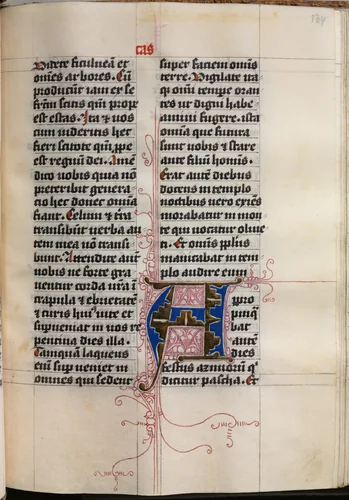 cas
Videte ficulneā et
om̄es arbores. Cū
producūt iam ex se
fr̄m scitis qm̄ prope
est estas. Ita ⁊ vos
cum videritis hec
fieri scitote qm̄ ꝓpe
est regnū dei. Amē
dico vobis quia nō
preteribit genera
cio hec donec omīa
fiant. Celum ⁊ tr̄a
transibūt verba au
tem mea nō transi
bunt. Attendite autē
vobis ne forte gra
ventur corda vr̄a ī
crapula ⁊ ebrietatē
⁊ curis huiꝰ vite et
superveniat in vos re
pentina dies illa.
Tamquā laqueus
eīm sup veniet in
omnes qui sedent
super faciem omīs
terre. Vigilate ita
qꝫ omī tempe oran
tes ut digni habe
amini fugere. ista
omīa que futura
sunt vobis ⁊ stare
ante filiū hom̄is.
Erat autē diebus
docens in templo
noctibus vero exiēs
morabatur in mon
te qui vocatur olive
ti. Et om̄is pl̄us
manicabat in tem
plo audire eum
Appro
pinq̄
bat
autē
dies
festus azimorū qͥ
dicitur pascha. Et